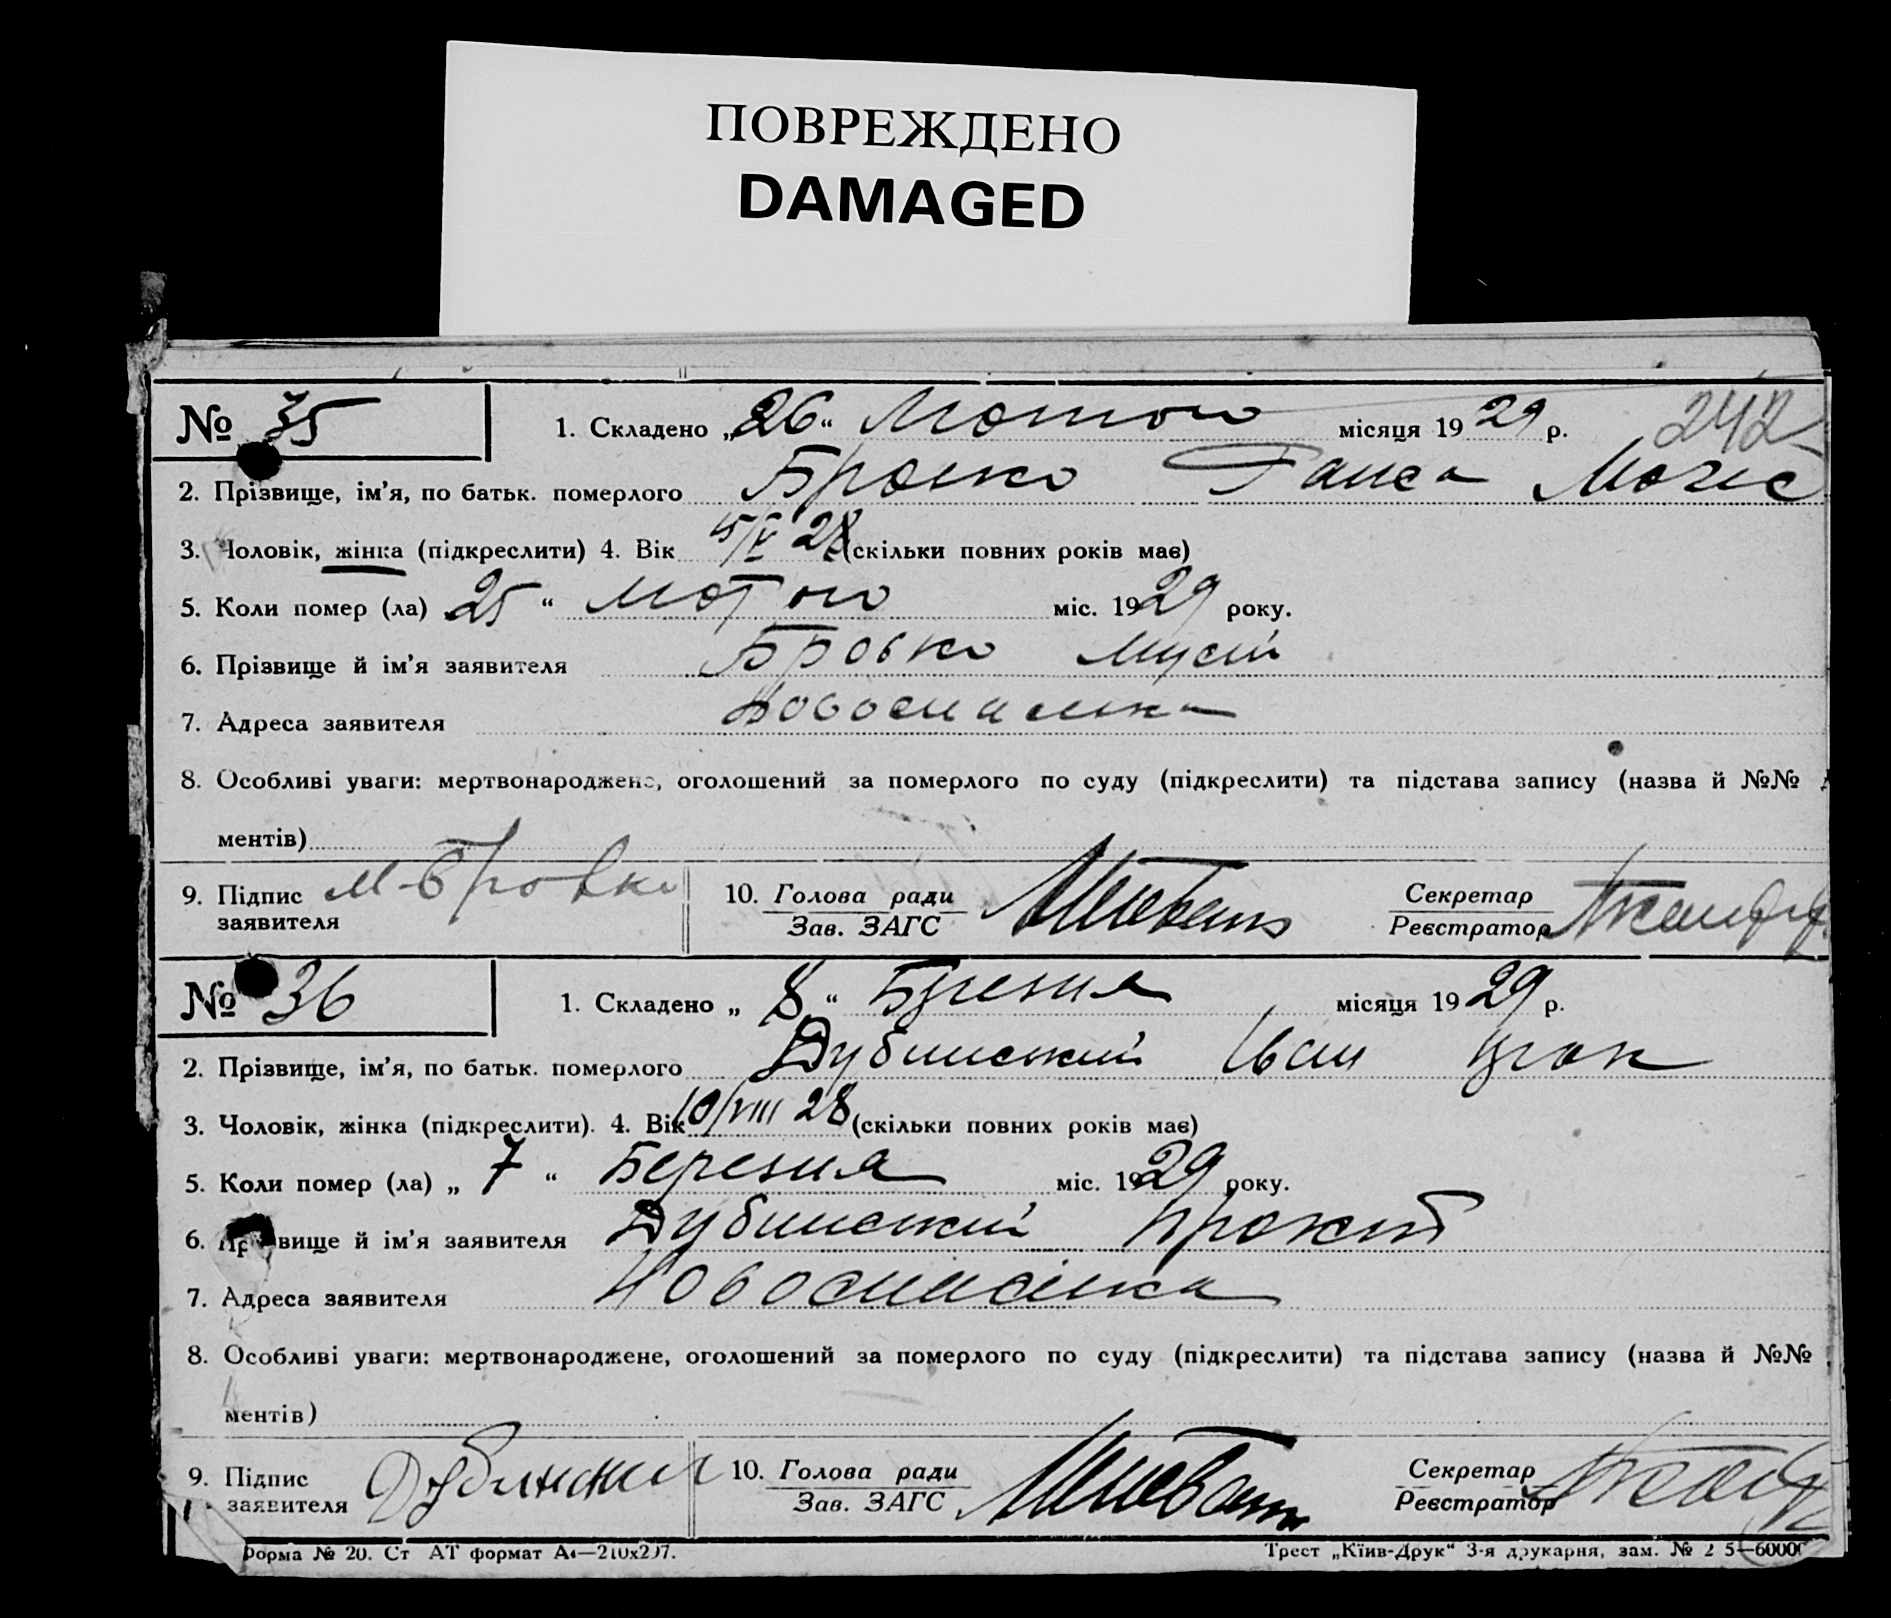 ПОВРЕЖДЕНО
DAMAGED
№ 35
1. Складено „26“ Лютого місяця 1929 р. 242
2. Прізвище, ім’я, по батьк. померлого Бровко
3. Чоловік, жінка (підкреслити) 4. Вік 5/V 28 (скільки повних років має)
5. Коли помер (ла) 25 “ лютого міс. 1929 року.
6. Прізвище й ім’я заявителя Бровко Мусій
7. Адреса заявителя Новоспаська
8. Особливі уваги: мертвонароджене, оголошений за померлого по суду (підкреслити) та підстава запису (назва й №№
ментів)
9. Підпис заявителя М Бровко
10. Голова ради
Зав. ЗАГС
Секретар
Реєстратор
№ 36
1. Складено „ 8 “ Березня місяця 1929 р.
2. Прізвище, ім’я, по батьк. померлого Дубинский Іван Прок
3. Чоловік, жінка (підкреслити). 4. Вік 10/VIII 28 (скільки повних років має)
5. Коли помер (ла) „ 7 “ Березня міс. 1929 року.
6. Прізвище й ім’я заявителя Дубинский Прокіп
7. Адреса заявителя Новоспаська
8. Особливі уваги: мертвонароджене, оголошений за померлого по суду (підкреслити) та підстава запису (назва й №№
ментів)
9. Підпис заявителя Дубинский
10. Голова ради
Зав. ЗАГС
Секретар
Реєстратор
Форма № 20. Ст АТ формат А4—210х297.
Трест „Київ-Друк“ 3-я друкарня, зам. №